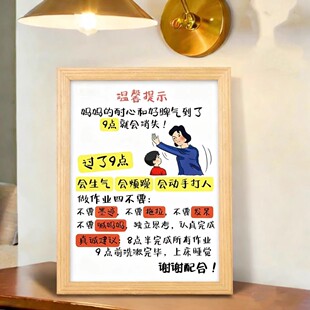 温馨提示
妈妈的耐心和好脾气到了
9点就会消失！
过了9点
会生气 会烦躁 会动手打人
做作业四不要：
不要墨迹，不要拖拉，不要发呆
不要喊妈妈，独立思考，认真完成
真诚建议：8点半完成所有作业
9点前洗漱完毕，上床睡觉
谢谢配合！